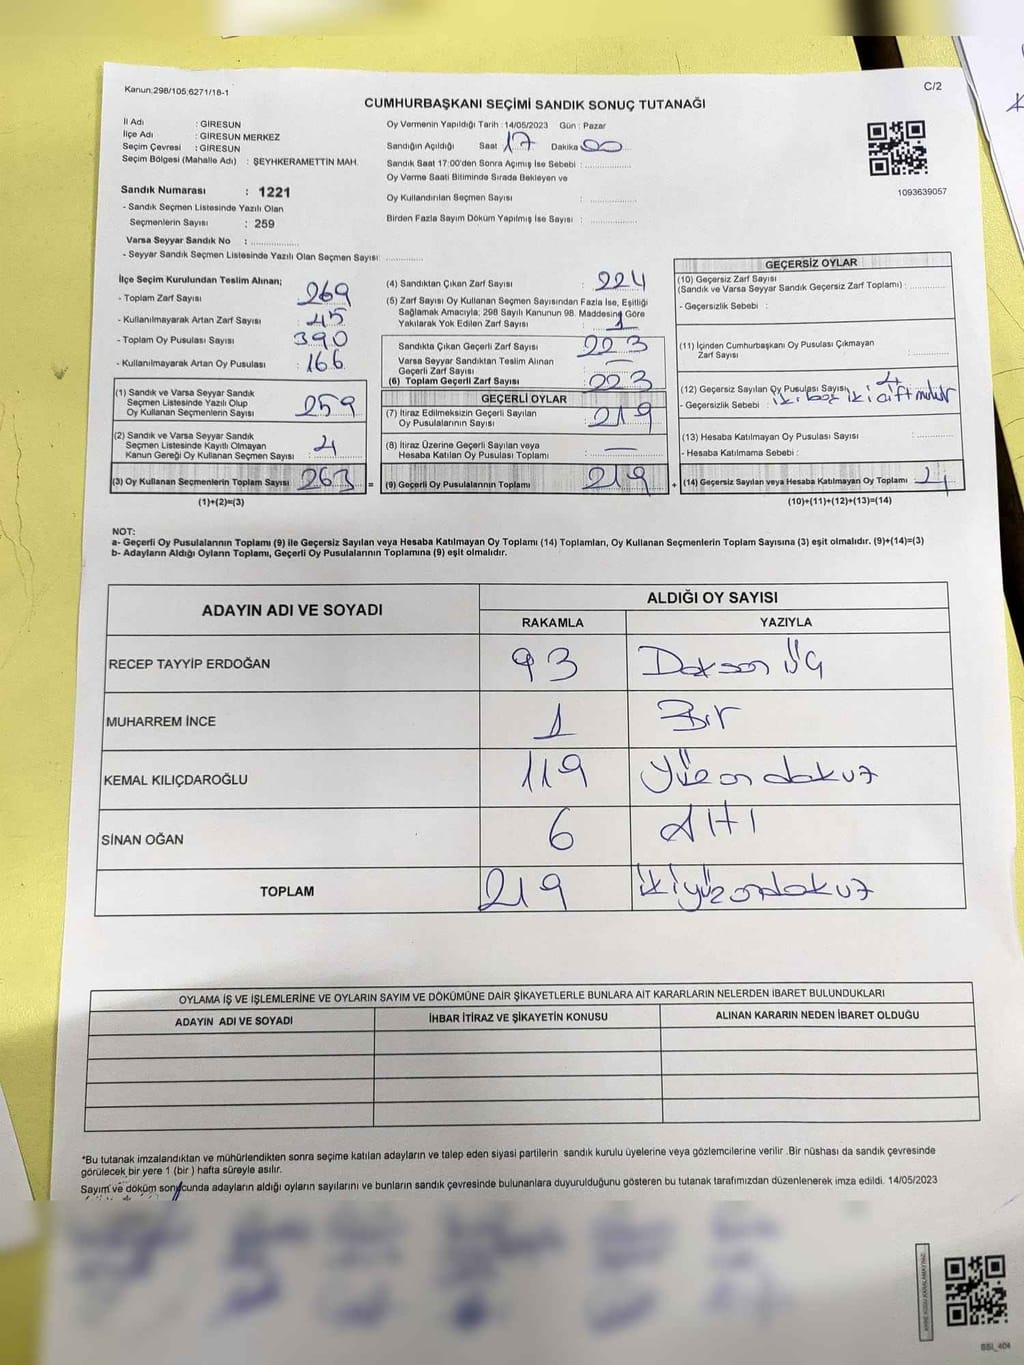 Kanun:298/105,6271/18-1
C/2
CUMHURBAŞKANI SEÇİMİ SANDIK SONUÇ TUTANAĞI
İl Adı : GİRESUN
İlçe Adı : GİRESUN MERKEZ
Seçim Çevresi : GİRESUN
Seçim Bölgesi (Mahalle Adı) : ŞEYHKERAMETTİN MAH.
Sandık Numarası : 1221
- Sandık Seçmen Listesinde Yazılı Olan
Seçmenlerin Sayısı : 259
Varsa Seyyar Sandık No : ..............
- Seyyar Sandık Seçmen Listesinde Yazılı Olan Seçmen Sayısı: ............
Oy Vermenin Yapıldığı Tarih : 14/05/2023 Gün : Pazar
Sandığın Açıldığı Saat 17 Dakika 00
Sandık Saat 17:00'den Sonra Açımış İse Sebebi : ..............
Oy Verme Saati Bitiminde Sırada Bekleyen ve
Oy Kullandırılan Seçmen Sayısı : ..............
Birden Fazla Sayım Döküm Yapılmış İse Sayısı : ..............
1093639057
İlçe Seçim Kurulundan Teslim Alınan;
- Toplam Zarf Sayısı : 269
- Kullanılmayarak Artan Zarf Sayısı : 45
- Toplam Oy Pusulası Sayısı : 390
- Kullanılmayarak Artan Oy Pusulası : 166
(1) Sandık ve Varsa Seyyar Sandık
Seçmen Listesinde Yazılı Olup
Oy Kullanan Seçmenlerin Sayısı : 259
(2) Sandık ve Varsa Seyyar Sandık
Seçmen Listesinde Kayıtlı Olmayan
Kanun Gereği Oy Kullanan Seçmen Sayısı : 4
(3) Oy Kullanan Seçmenlerin Toplam Sayısı : 263 =
(1)+(2)=(3)
(4) Sandıktan Çıkan Zarf Sayısı : 224
(5) Zarf Sayısı Oy Kullanan Seçmen Sayısından Fazla İse, Eşitliği
Sağlamak Amacıyla; 298 Sayılı Kanunun 98. Maddesine Göre
Yakılarak Yok Edilen Zarf Sayısı : 1
Sandıkta Çıkan Geçerli Zarf Sayısı : 223
Varsa Seyyar Sandıktan Teslim Alınan
Geçerli Zarf Sayısı : —
(6) Toplam Geçerli Zarf Sayısı : 223
GEÇERLİ OYLAR
(7) İtiraz Edilmeksizin Geçerli Sayılan
Oy Pusulalarının Sayısı : 219
(8) İtiraz Üzerine Geçerli Sayılan veya
Hesaba Katılan Oy Pusulası Toplamı : —
(9) Geçerli Oy Pusulalarının Toplamı : 219 +
GEÇERSİZ OYLAR
(10) Geçersiz Zarf Sayısı
(Sandık ve Varsa Seyyar Sandık Geçersiz Zarf Toplamı) : ............
- Geçersizlik Sebebi :
(11) İçinden Cumhurbaşkanı Oy Pusulası Çıkmayan
Zarf Sayısı : ............
(12) Geçersiz Sayılan Oy Pusulası Sayısı : 4
- Geçersizlik Sebebi : iki boş iki çift mühür
(13) Hesaba Katılmayan Oy Pusulası Sayısı : ............
- Hesaba Katılmama Sebebi :
(14) Geçersiz Sayılan veya Hesaba Katılmayan Oy Toplamı : 4
(10)+(11)+(12)+(13)=(14)
NOT:
a- Geçerli Oy Pusulalarının Toplamı (9) ile Geçersiz Sayılan veya Hesaba Katılmayan Oy Toplamı (14) Toplamları, Oy Kullanan Seçmenlerin Toplam Sayısına (3) eşit olmalıdır. (9)+(14)=(3)
b- Adayların Aldığı Oyların Toplamı, Geçerli Oy Pusulalarının Toplamına (9) eşit olmalıdır.
ADAYIN ADI VE SOYADI ALDIĞI OY SAYISI
RAKAMLA YAZIYLA
RECEP TAYYİP ERDOĞAN 93 Doksan Üç
MUHARREM İNCE 1 Bir
KEMAL KILIÇDAROĞLU 119 Yüz on dokuz
SİNAN OĞAN 6 Altı
TOPLAM 219 İkiyüzondokuz
OYLAMA İŞ VE İŞLEMLERİNE VE OYLARIN SAYIM VE DÖKÜMÜNE DAİR ŞİKAYETLERLE BUNLARA AİT KARARLARIN NELERDEN İBARET BULUNDUKLARI
ADAYIN ADI VE SOYADI İHBAR İTİRAZ VE ŞİKAYETİN KONUSU ALINAN KARARIN NEDEN İBARET OLDUĞU
*Bu tutanak imzalandıktan ve mühürlendikten sonra seçime katılan adayların ve talep eden siyasi partilerin sandık kurulu üyelerine veya gözlemcilerine verilir .Bir nüshası da sandık çevresinde
görülecek bir yere 1 (bir ) hafta süreyle asılır.
Sayım ve döküm sonucunda adayların aldığı oyların sayılarını ve bunların sandık çevresinde bulunanlara duyurulduğunu gösteren bu tutanak tarafımızdan düzenlenerek imza edildi. 14/05/2023